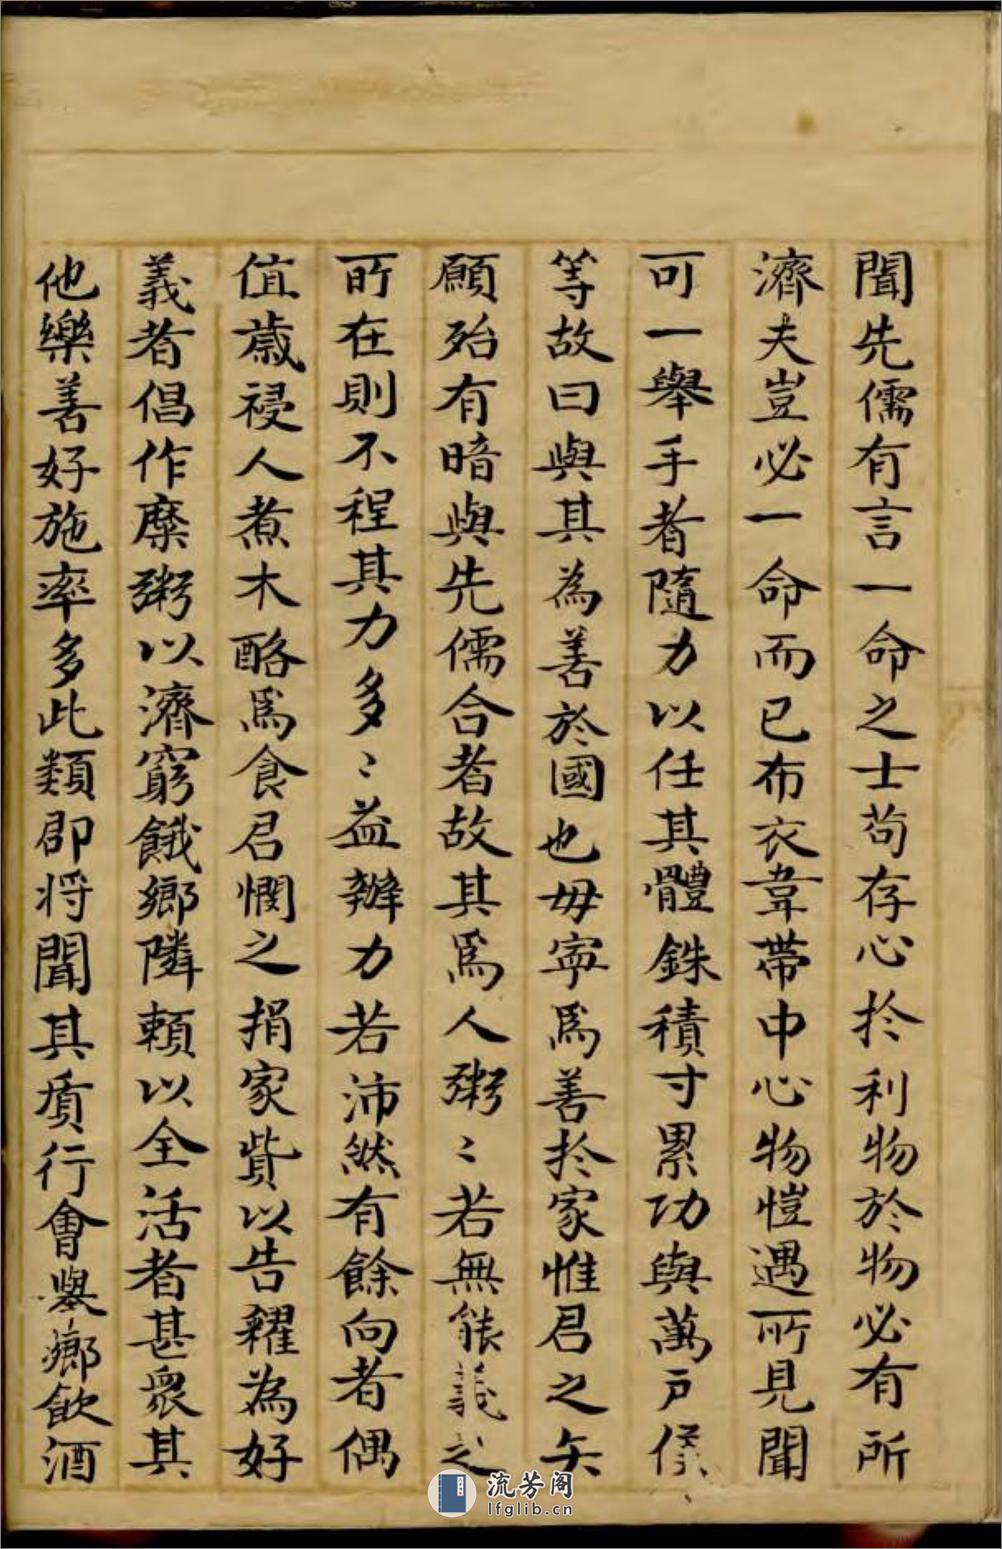 聞先儒有言一命之士苟存心扵利物於物必有所
濟夫豈必一命而已布衣韋帶中心物愷遇所見聞
可一舉手者隨力以任其體銖積寸累功與萬戶侯
等故曰與其為善於國也毋寧爲善扵家惟君之矢
願殆有暗與先儒合者故其爲人粥〻若無能義之
所在則不程其力多〻益辦力若沛然有餘向者偶
值歲祲人煮木酪爲食君憫之捐家貲以告糴為好
義者倡作糜粥以濟窮餓鄉隣頼以全活者甚衆其
他樂善好施率多此類郡将聞其質行會舉鄉飲酒
流芳阁
lfglib.cn